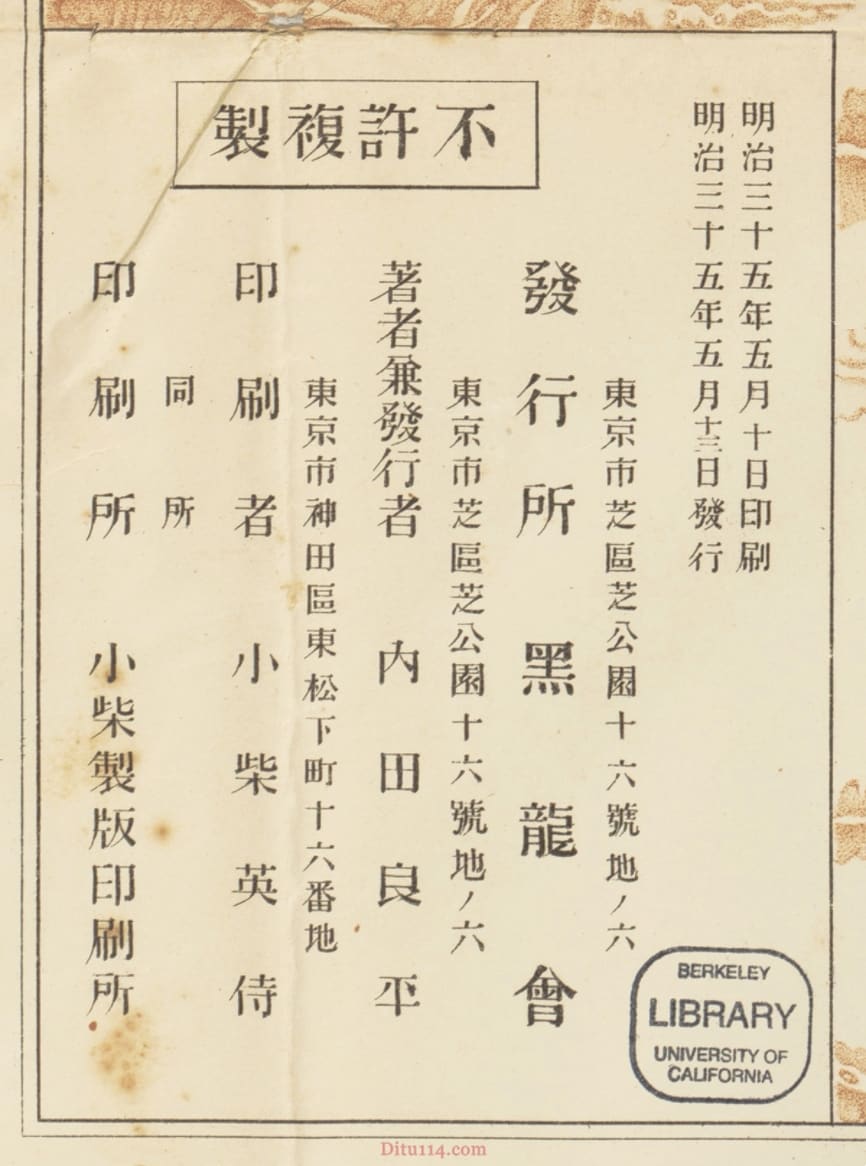 不許複製
明治三十五年五月十日印刷
明治三十五年五月十三日發行
東京市芝區芝公園十六號地ノ六
發行所 黑龍會
東京市芝區芝公園十六號地ノ六
著者兼發行者 內田良平
東京市神田區東松下町十六番地
印刷者 小柴英侍
同所
印刷所 小柴製版印刷所
BERKELEY
LIBRARY
UNIVERSITY OF
CALIFORNIA
Ditu114.com